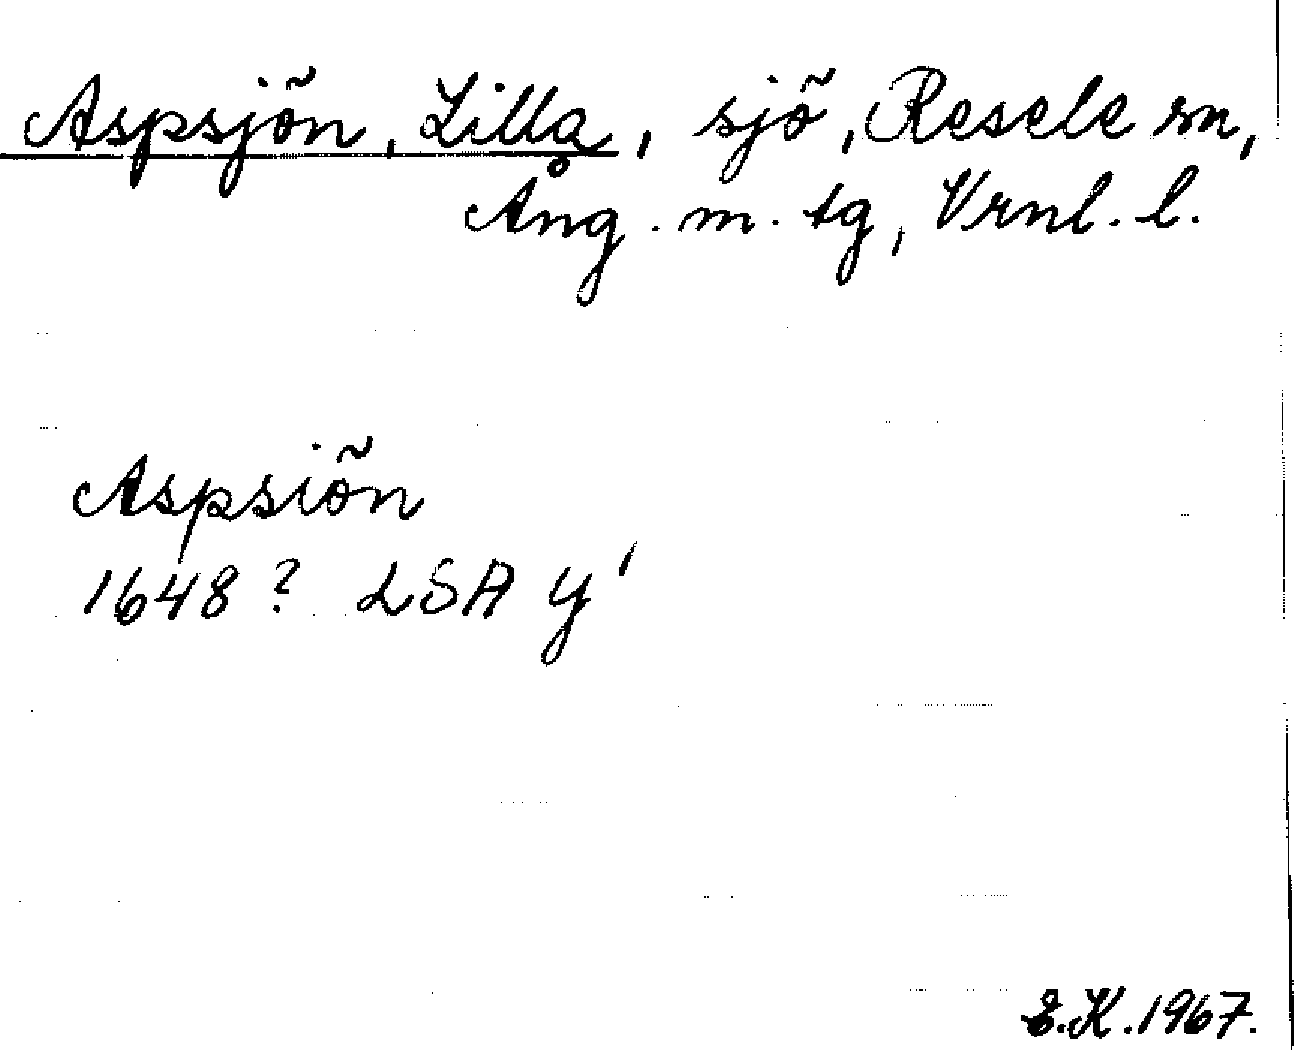 Aspsjön, Lilla, sjö, Resele sn,
Ång. m. tg, Vrnl. l.
Aspsiön
1648? LSA Y'
E.K. 1967.